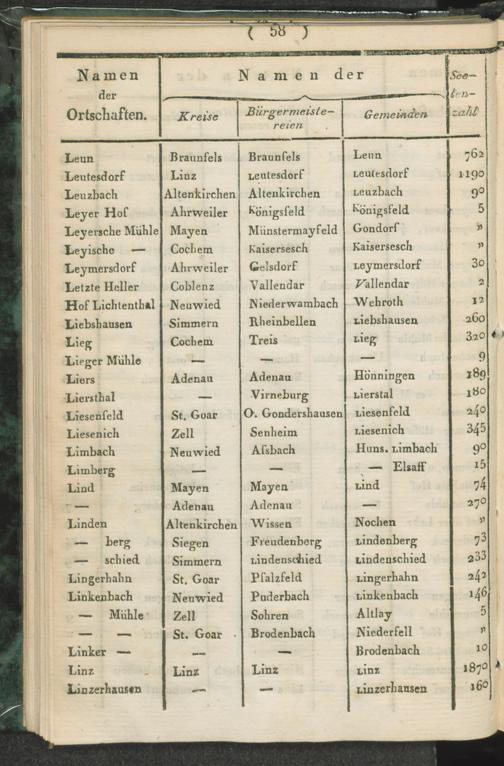 ( 58 )
Namen der Ortschaften. | Namen der | See-len-zahl
Kreise | Bürgermeiste-reien | Gemeinden
Leun | Braunfels | Braunfels | Leun | 762
Leutesdorf | Linz | Leutesdorf | Leutesdorf | 1190
Leuzbach | Altenkirchen | Altenkirchen | Leuzbach | 90
Leyer Hof | Ahrweiler | Königsfeld | Königsfeld | 5
Leyersche Mühle | Mayen | Münstermayfeld | Gondorf | „
Leyische — | Cochem | Kaisersesch | Kaisersesch | „
Leymersdorf | Ahrweiler | Gelsdorf | Leymersdorf | 30
Letzte Heller | Coblenz | Vallendar | Vallendar | 2
Hof Lichtenthal | Neuwied | Niederwambach | Wehroth | 12
Liebshausen | Simmern | Rheinbellen | Liebshausen | 260
Lieg | Cochem | Treis | Lieg | 320
Lieger Mühle | — | — | — | 9
Liers | Adenau | Adenau | Hönningen | 189
Liersthal | — | Virneburg | Lierstal | 180
Liesenfeld | St. Goar | O. Gondershausen | Liesenfeld | 240
Liesenich | Zell | Senheim | Liesenich | 345
Limbach | Neuwied | Aſsbach | Huns. Limbach | 90
Limberg | — | — | — Elsaff | 15
Lind | Mayen | Mayen | Lind | 74
— | Adenau | Adenau | — | 270
Linden | Altenkirchen | Wissen | Nochen | „
— berg | Siegen | Freudenberg | Lindenberg | 73
— schied | Simmern | Lindenschied | Lindenschied | 233
Lingerhahn | St. Goar | Pfalzfeld | Lingerhahn | 242
Linkenbach | Neuwied | Puderbach | Linkenbach | 146
— Mühle | Zell | Sohren | Altlay | 5
— — | St. Goar | Brodenbach | Niederfell | „
Linker — | — | — | Brodenbach | 10
Linz | Linz | Linz | Linz | 1870
Linzerhausen | — | — | Linzerhausen | 160